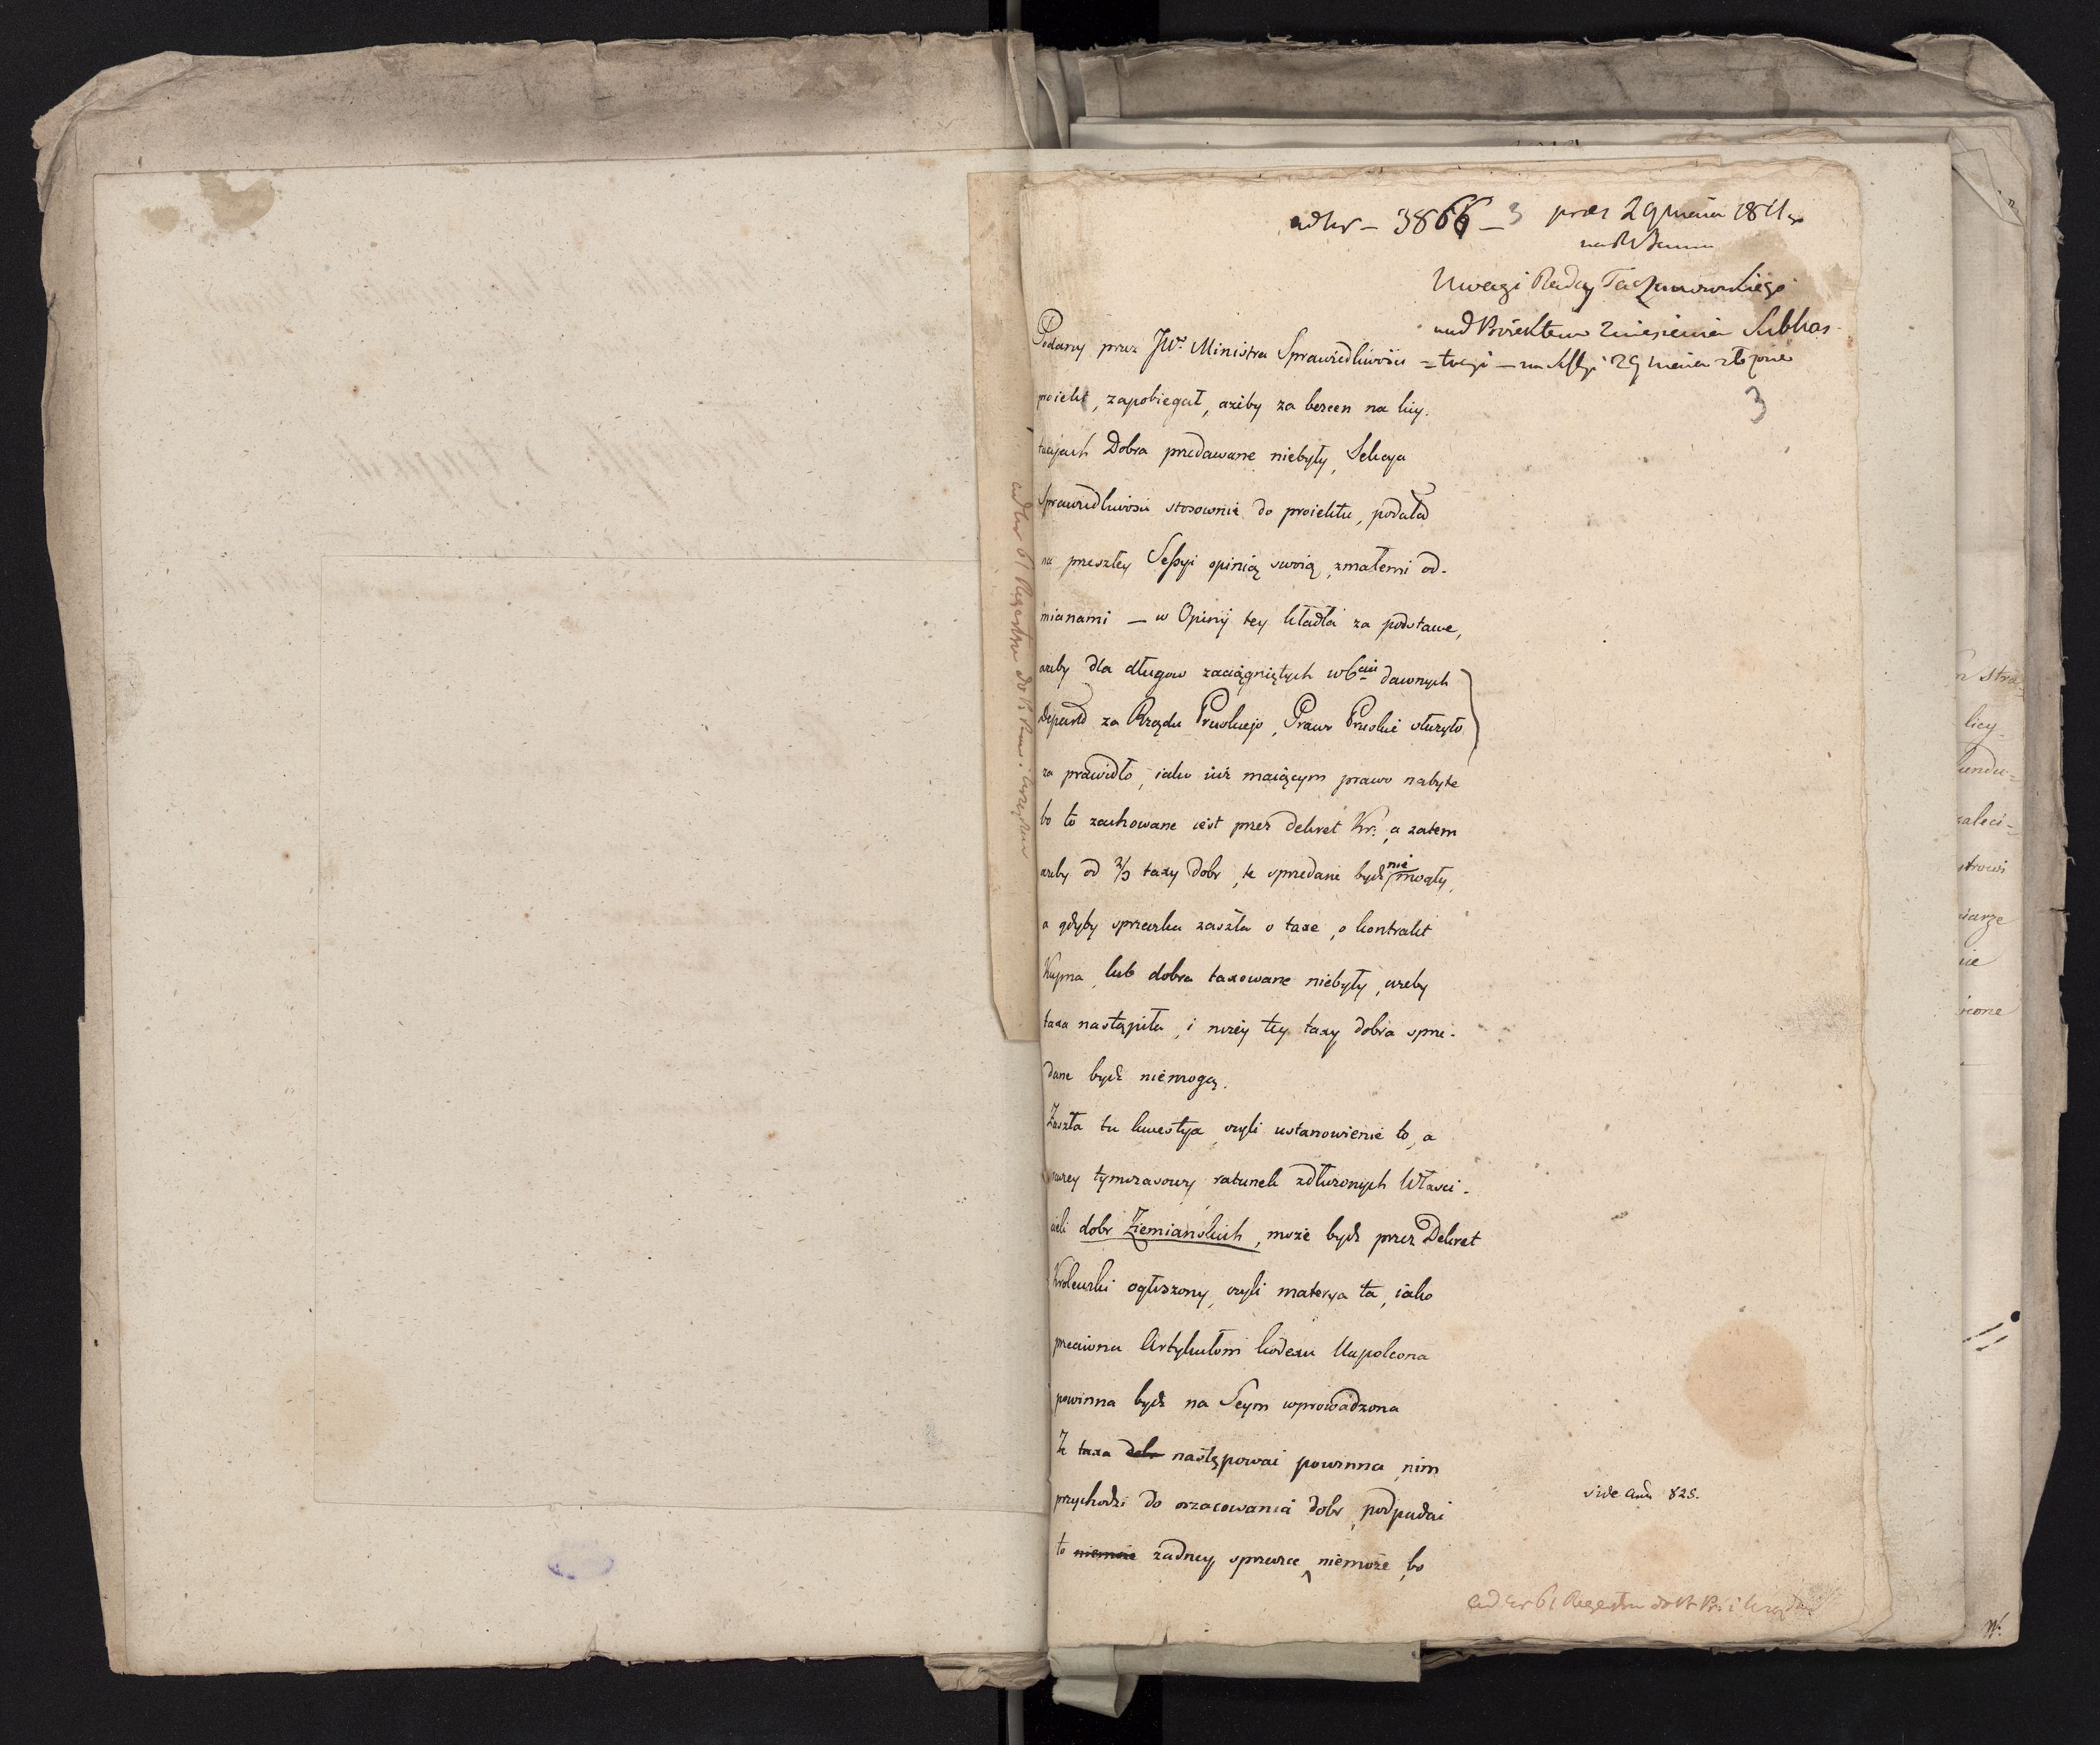 ad Nr – 3866 – 3 prez 29 maia 1811 r
Uwagi Radcy Taczanowskiego
nad Proiektem zniesienia Subhas-
=tacyi – na Sessyi 29 maia złożone
3
Podany przez JW. Ministra Sprawiedliwości
proiekt, zapobiegał, ażeby za bezcen na licy-
tacyach Dobra przedawane niebyły, Sekcya
Sprawiedliwości stosownie do proiektu, podała
na przeszłey Sessyi opinią swoią, z małemi od-
mianami – w Opinij tey kładła za podstawe,
ażeby dla długow zaciągniętych w 6ciu dawnych
Depart za Rządu Pruskiego, Prawo Pruskie służyło
za prawidło, iako iuż maiącym prawo nabyte
bo to zachowane iest przez dekret Kr. a zatem
ażeby od 2/3 taxy dobr, te sprzedane bydź nie mogły,
a gdyby sprzeczka zaszła o taxe, o kontrakt
Kupna, lub dobra taxowane niebyły, ażeby
taxa nastąpiła, i niżey tey taxy dobra sprze-
dane bydź niemogą.
Zaszła tu kwestya, czyli ustanowienie to, a
raczey tymczasowy ratunek zdłużonych Właści-
cieli dobr Ziemianskich, może bydź przez Dekret
Krolewski ogłoszony, czyli materya ta, iako
przeciwna Artykułom kodexu Napoleona
powinna bydź na Seym wprowadzona
Ze taxa dobr następować powinna, nim
przychodzi do oszacowania dobr, podpadać
to niemoże żadney sprzeczce niemoże, bo
vide
ad Nr 61 Regestru do
ad Nr 61 Regestru do